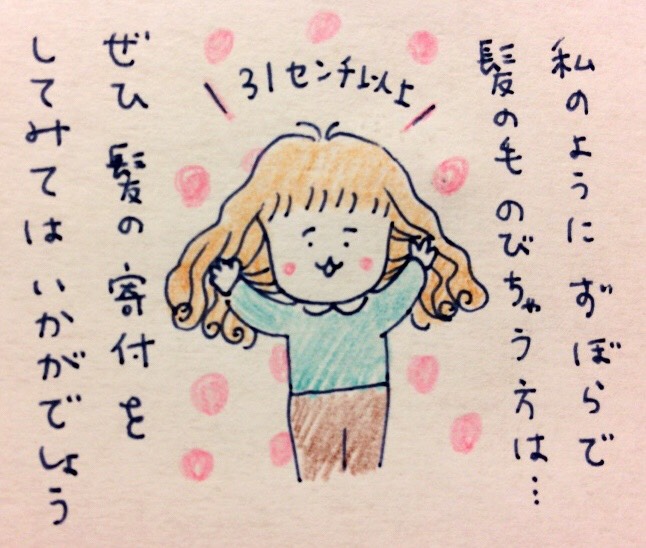 私のようにずぼらで
髪の毛のびちゃう方は…
31センチ以上
ぜひ髪の寄付を
してみてはいかがでしょう